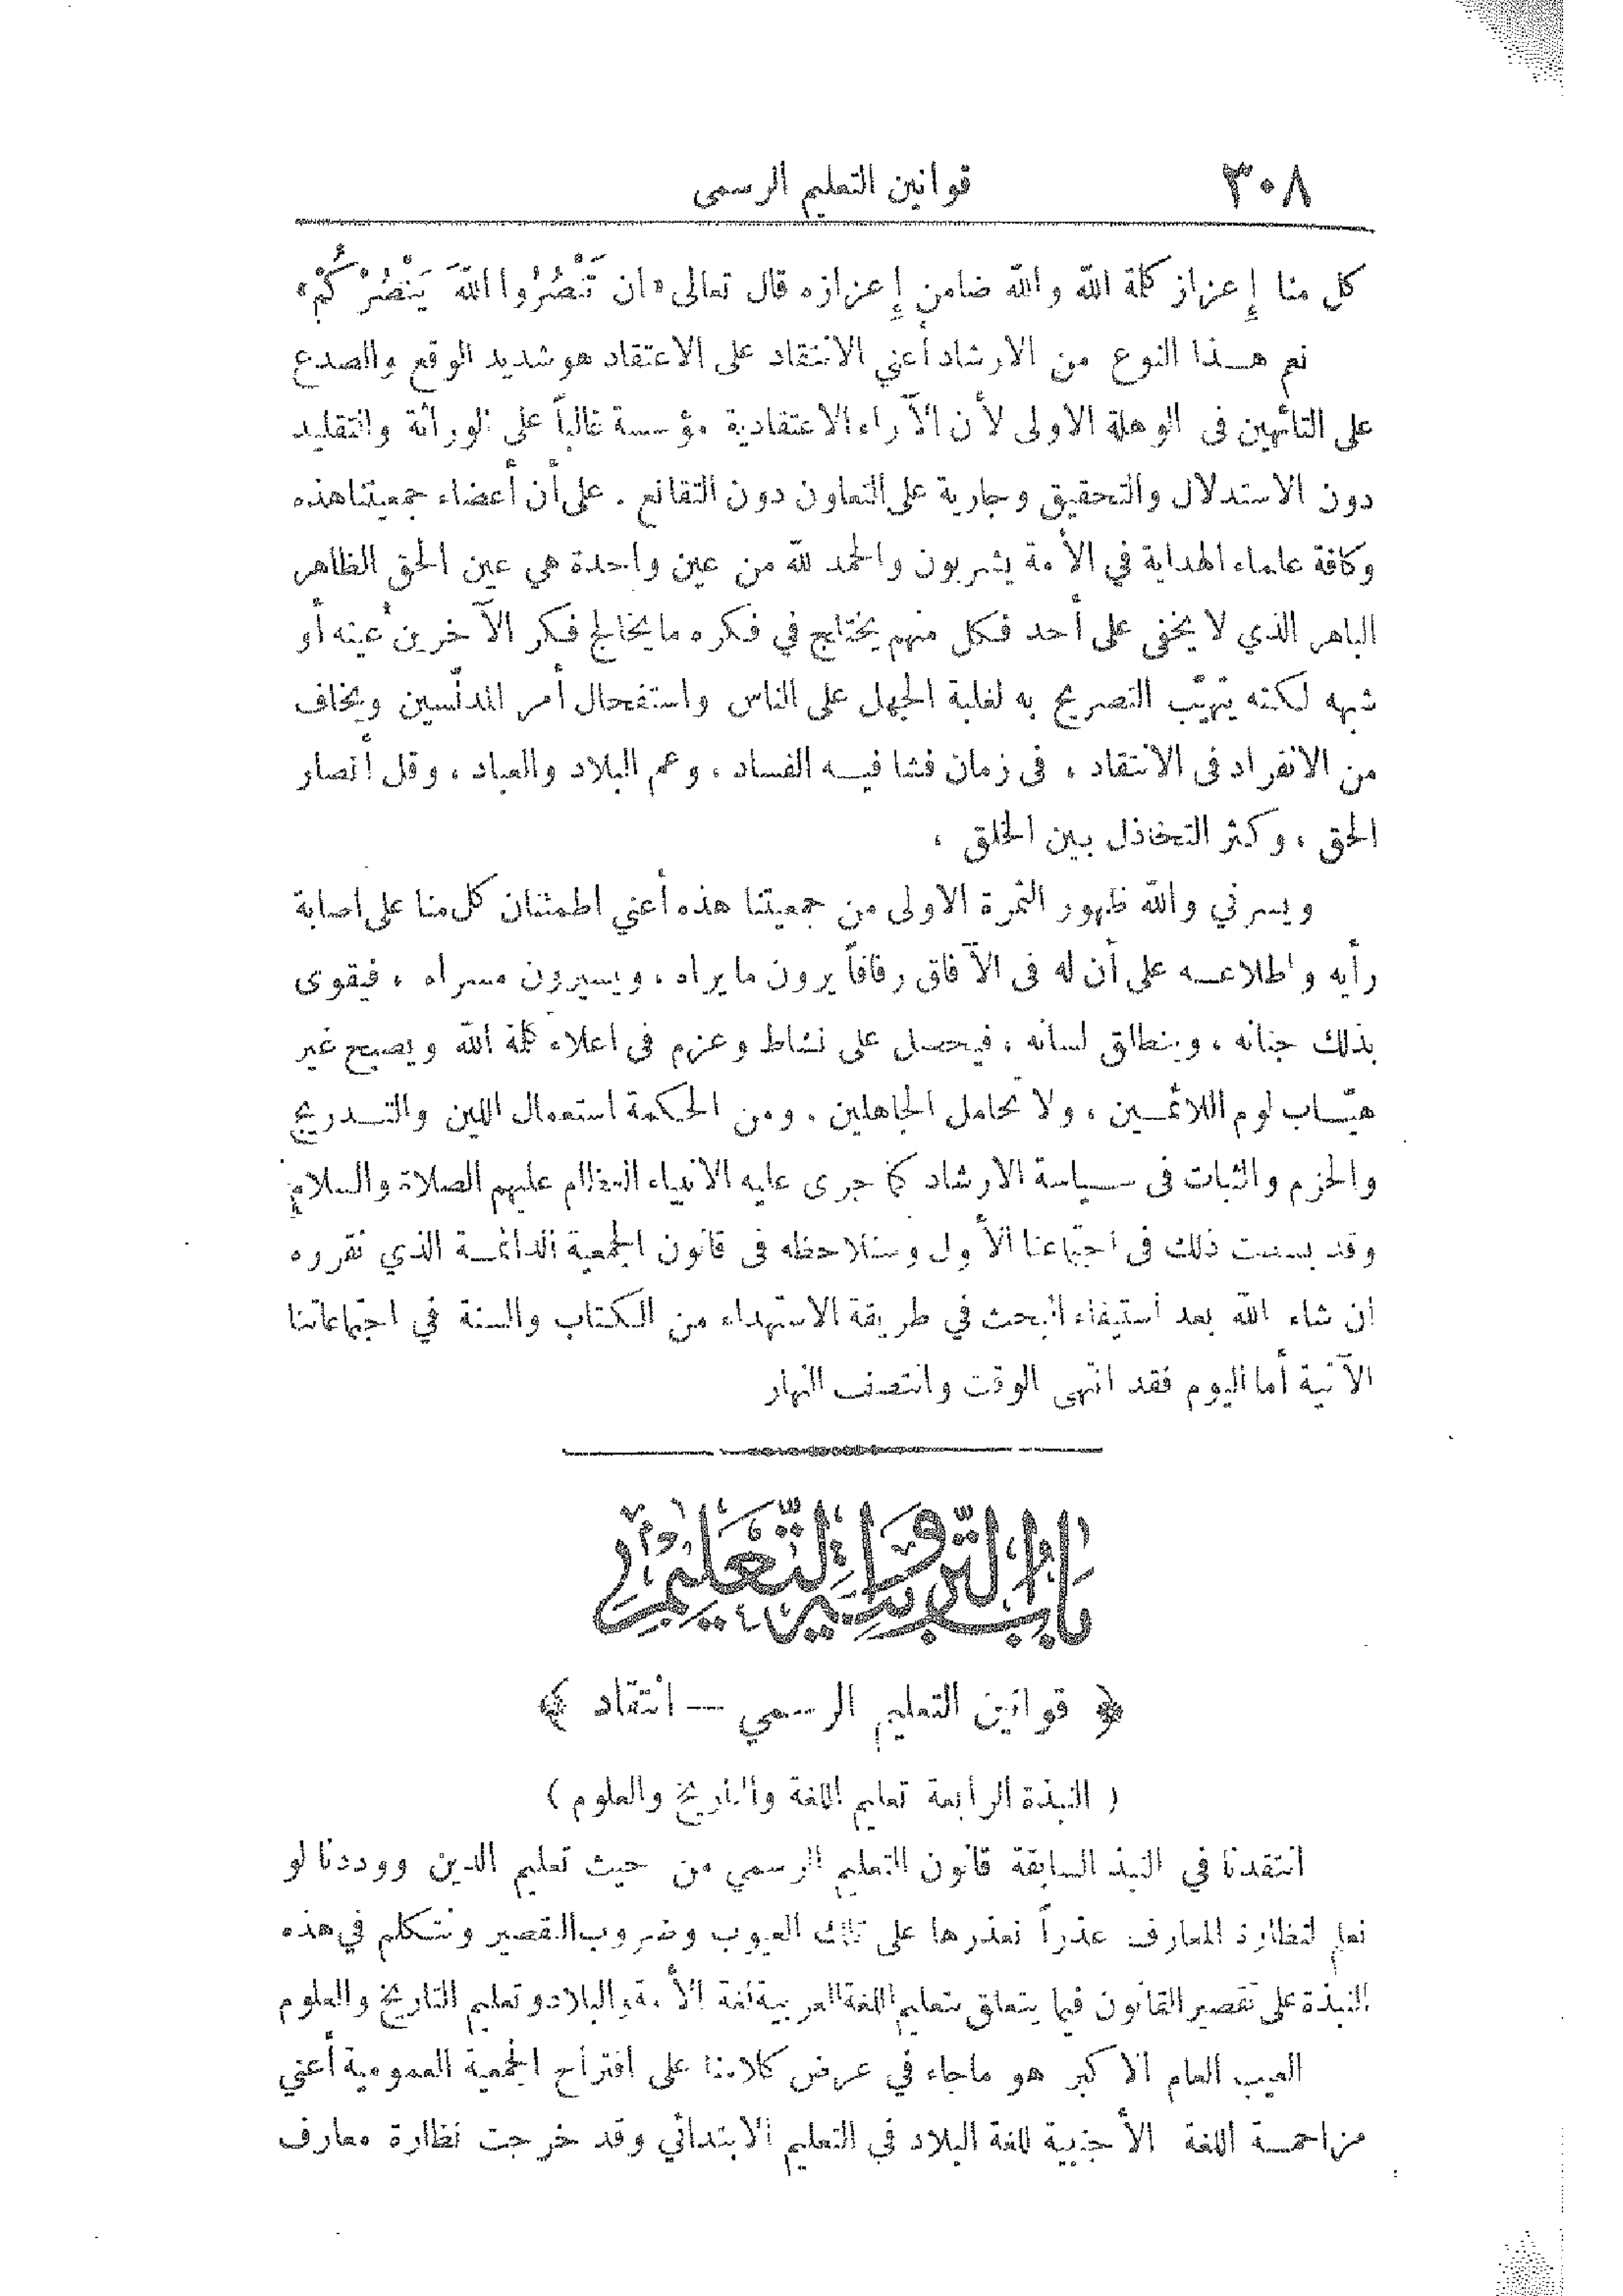 ٣٠٨
قوانين التعليم الرسمى
كل منا إعزاز كلمة الله والله ضامن إعزازه قال تعالى «ان تَنْصُرُوا اللهَ يَنْصُرْكُمْ»
نعم هـذا النوع من الارشاد أعني الانتقاد على الاعتقاد هو شديد الوقع والصدع
على التائهين فى الوهلة الاولى لأن الآراء الاعتقادية مؤسسة غالباً على الوراثة والتقليد
دون الاستدلال والتحقيق وجارية على التعاون دون التقانع . على أن أعضاء جمعيتنا هذه
وكافة علماء الهداية في الأمة يشربون والحمد لله من عين واحدة هي عين الحق الظاهر
الباهر الذي لا يخفى على أحد فكل منهم يختلج في فكره ما يخالج فكر الآخرين عينه أو
شبهه لكنه يتهيّب التصريح به لغلبة الجهل على الناس واستفحال أمر المدلّسين ويخاف
من الانفراد فى الانتقاد ، فى زمان فشا فيـه الفساد ، وعم البلاد والعباد ، وقل أنصار
الحق ، وكثر التخاذل بين الخلق ،
ويسرني والله ظهور الثمرة الاولى من جمعيتنا هذه أعني اطمئنان كل منا على اصابة
رأيه واطلاعـه على أن له فى الآفاق رفاقاً يرون ما يراه ، ويسيرون مسراه ، فيقوى
بذلك جنانه ، وينطلق لسانه ، فيحصل على نشاط وعزم فى اعلاء كلمة الله ويصبح غير
هيّـاب لوم اللائمـين ، ولا تحامل الجاهلين . ومن الحكمة استعمال اللين والتـدريج
والحزم والثبات فى سـياسة الارشاد كما جرى عليه الانبياء العظام عليهم الصلاة والسلام
وقد بسطت ذلك فى اجتماعنا الأول وسنلاحظه فى قانون الجمعية الدائمـة الذي نقرره
ان شاء الله بعد استيفاء البحث في طريقة الاستهداء من الكتاب والسنة في اجتماعاتنا
الآتية أما اليوم فقد انتهى الوقت وانتصف النهار
باب التربية والتعليم
﴿ قوانين التعليم الرسمي — انتقاد ﴾
( النبذة الرابعة تعليم اللغة والتاريخ والعلوم )
انتقدنا في النبذ السابقة قانون التعليم الرسمي من حيث تعليم الدين ووددنا لو
نعلم لنظارة المعارف عذراً نعذرها على تلك العيوب وضروب التقصير ونتكلم في هذه
النبذة على تقصير القانون فيما يتعلق بتعليم اللغة العربية لغة الأمة والبلاد وتعليم التاريخ والعلوم
العيب العام الاكبر هو ما جاء في عرض كلامنا على اقتراح الجمعية العمومية أعني
مزاحمـة اللغة الأجنبية للغة البلاد في التعليم الابتدائي وقد خرجت نظارة معارف